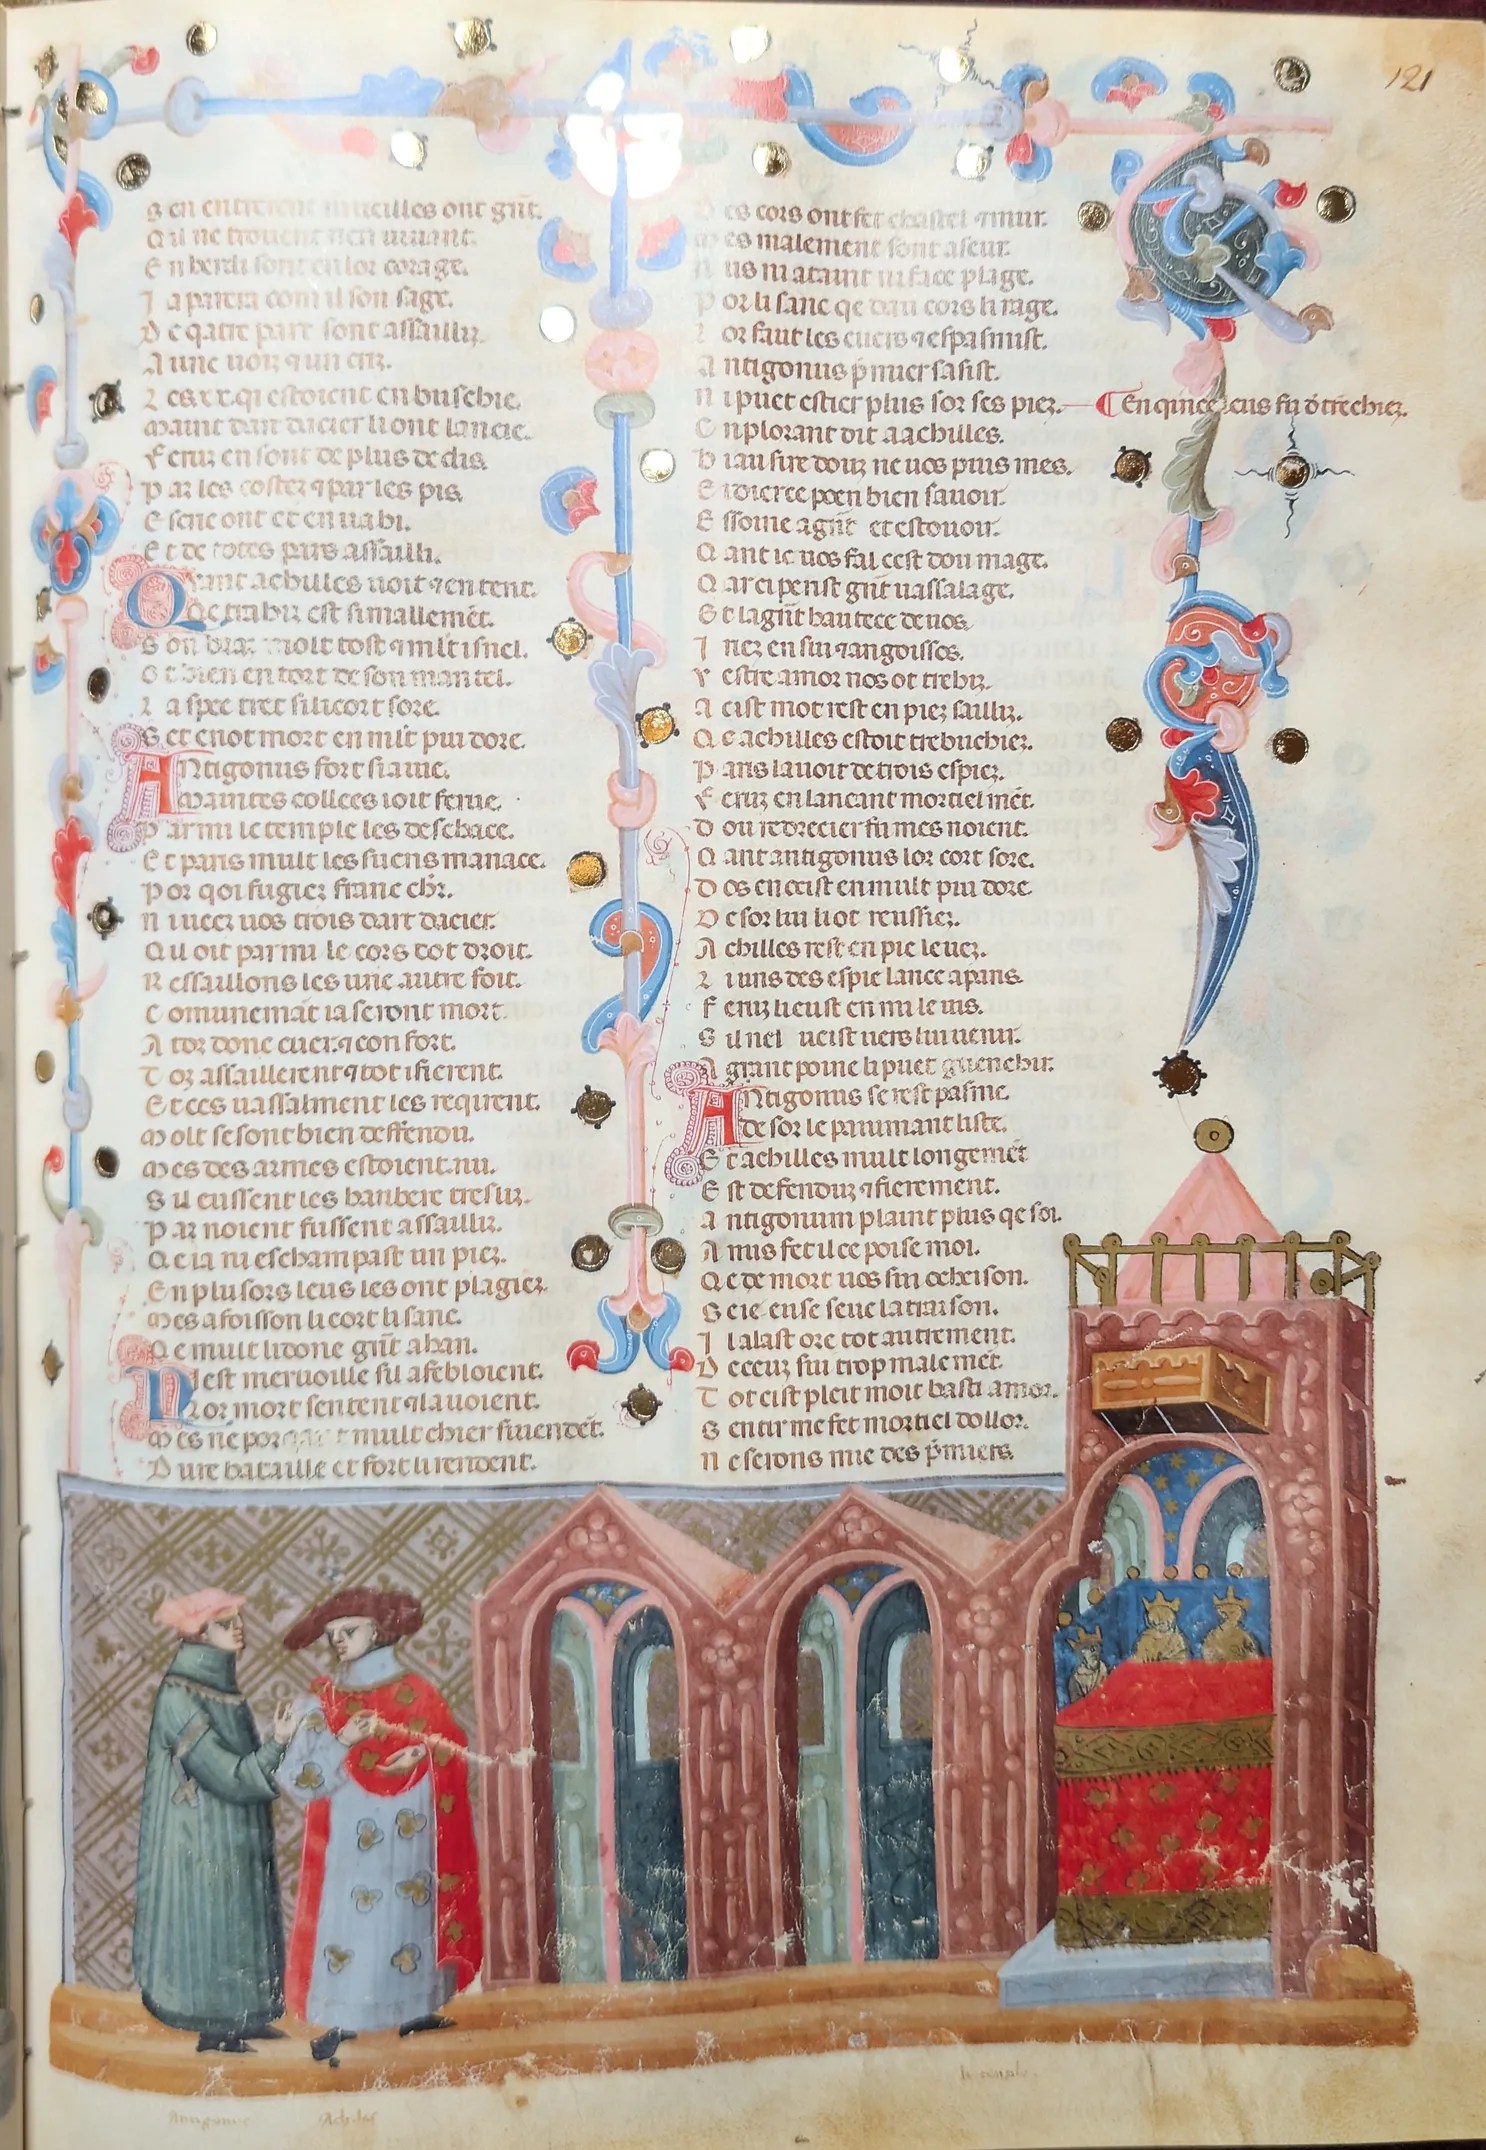 121
S en entrerent merueilles ont gñt.
Q il ne trouent rien uiuant.
E n berdi sont en lor corage.
J a parera com il son sage.
D e qatre part sont assailliz
A une uoiz ⁊ un criz.
L es xx. qi estoient en buschie.
M aint dart dacier li ont lancie.
F eruz en sont de plus de dis
P ar les costez ⁊ par les pis
E scrie ont et en uabi.
E t de totes pars assailli.
Quant achilles uoit ⁊ entent.
Qe trahiz est si mallemẽt.
S on braz molt tost ⁊ mlt isnel.
O t bien entort de son mantel.
L a spee trete si li cort sore.
S et en ot mort en mlt pui dore.
Antigonus fort si aiue.
Maintes collees i oit ferue.
P armi le temple les deschace.
E t paris mult les suens manace.
P or qoi fugiez franc chr.
N i ueez uos trois dart dacier.
Qu oit parmi le cors tot droit.
R essaillons les une autre foit.
C omunemãt ia seront mort.
A tor donc cuer ⁊ confort.
T oz assaillerent ⁊ tot i fierent.
E t ces uassalment les reqirent.
M olt se sont bien deffendu.
M es des armes estoient nu.
S il eussent les hauberc tresliz.
P ar noient fussent assailliz.
Q e ia ni eschampast un piez.
E n plusors leus les ont plagiez
M es a foisson li cort li sanc.
Q e mult li done gñt ahan.
Nest meruoille sil afebloient.
Lor mort sentent ⁊ la uoient.
M es ne por qant mult chier si uendẽt.
D ure bataille et fort li rendent.
D es cors ont fet chastel ⁊ mur.
M es malement sont aseur.
N us ni ataint ni face plage.
P or li sanc qe dau cors li rage.
L or faut les cuers ⁊ espasmist.
A ntigonus p̃mier sasist.
N i puet estier plus sor ses piez.
E n plorant dit a achilles.
B iau sire douz ne uos puis mes.
E i dierce poen bien sauoir.
E ssoine a gñt et estouoir.
Q ant ie uos fal cest domage.
Q ar ci perist gñt uassalage.
E t la gñt hautece de uos
J riez en sui ⁊ angoissos.
V estre amor nos ot trebiz
A cist mot rest en piez sailliz.
Q e achilles estoit trebuchiez.
P aris lauoit de trois espiez.
F eruz en lancant mortiel mẽt.
D ou redrecier fu mes noient.
Q ant antigonus lor cort sore.
D os en ocist en mult pui dore
D esor lui li ot reussiez.
A chilles rest en pie leuez.
L i uns des espie lance a paris.
F eruz li eust en mi le uis.
S il nel ueist uers lui uenir.
A grant poine li puet guenchir.
Antigonus se rest pasme
desor le pauimant liste.
E t achilles mult longemẽt
E st defenduz ⁊ fierement.
A ntigonum plaint plus qe soi.
A mis fet il ce poise moi.
Q e de mort uos sui ocheison.
S eie en se seue la traison.
J l alast ore tot autrement.
D eceuz sui trop malemẽt.
T ot cist pleit moit basti amor.
S entir me fet mortiel dollor.
N e serons mie des p̃miers
En qince leus fu detrẽchiez.
Antigonus
Achilles
le temple